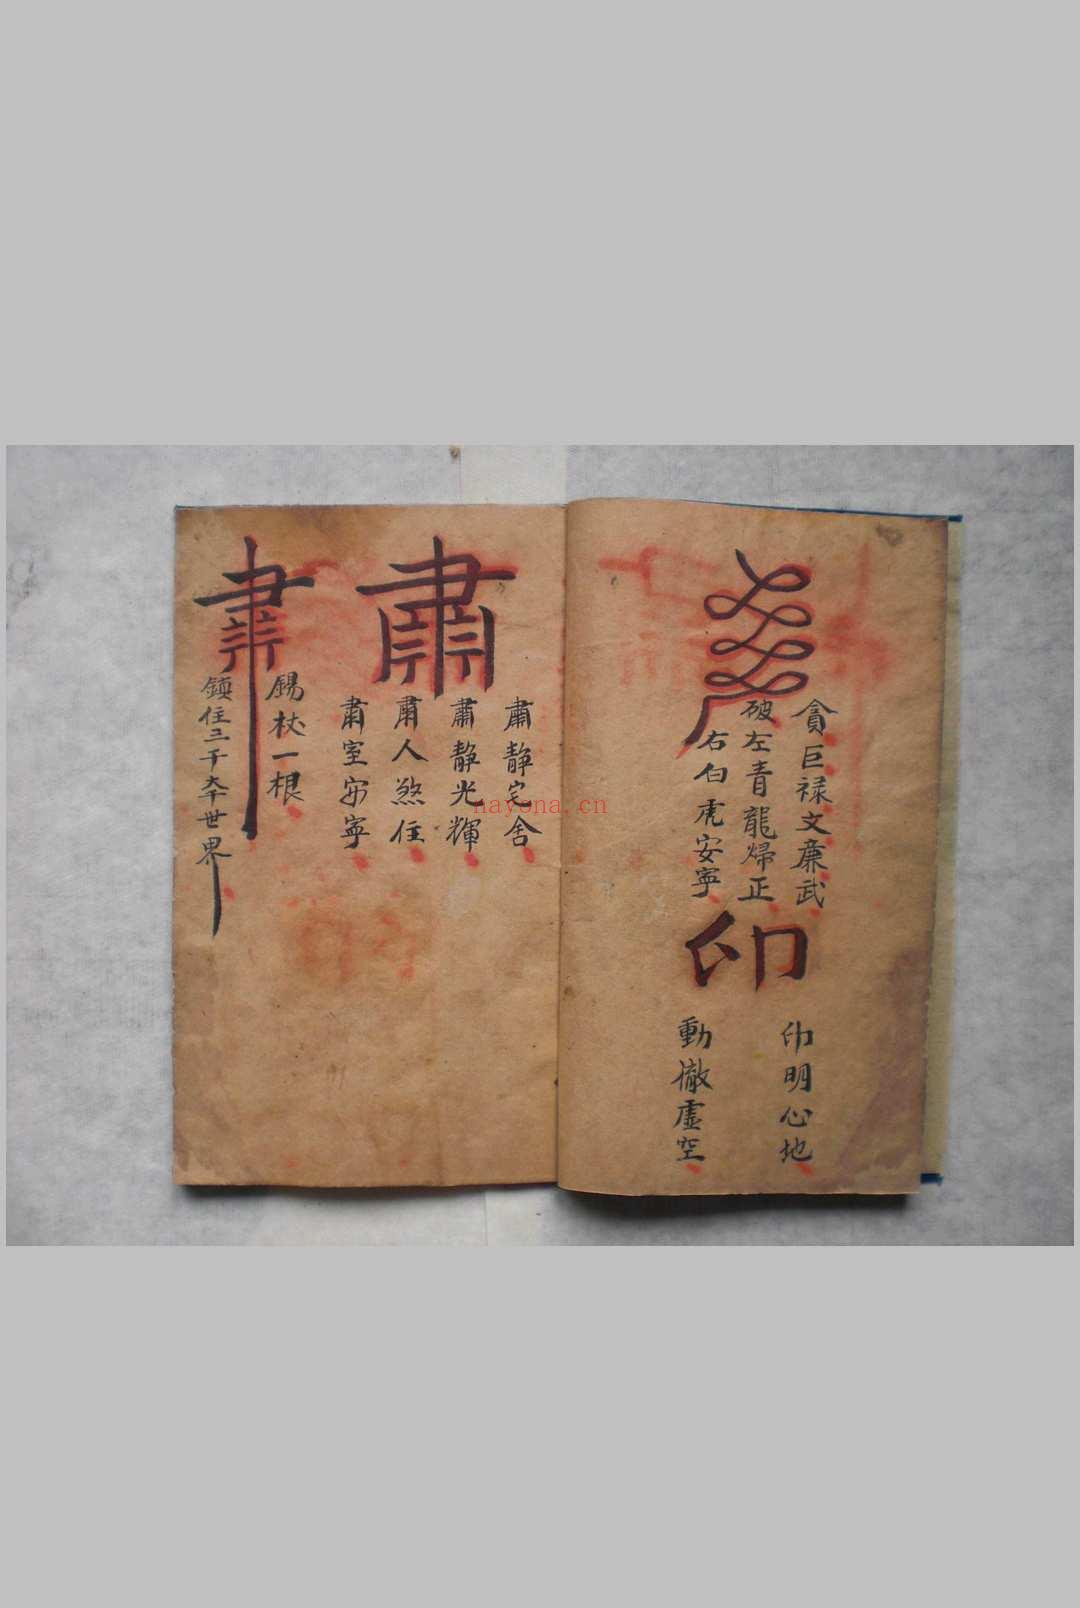 貪巨禄文廉武
破左青龍歸正
右白虎安寧
印
印明心地
動徹虛空
肅
肅靜宅舍
肅靜光輝
肅人煞住
肅室安寧
錫杖一根
鎮住三千大千世界
nayona.cn